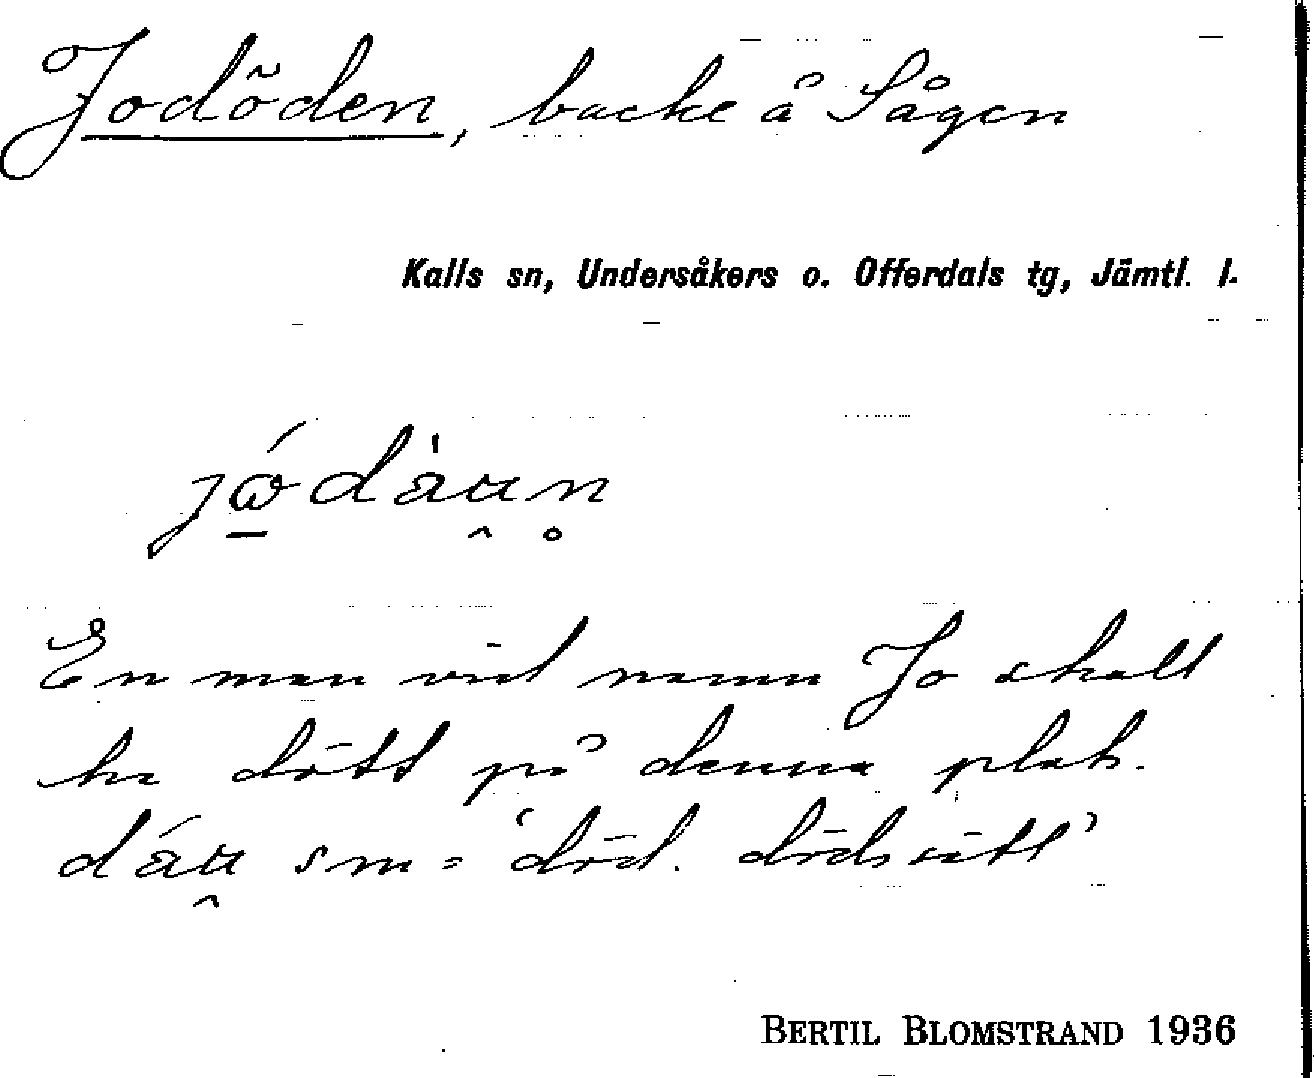 Jodöden, backe å Sågen
Kalls sn, Undersåkers o. Offerdals tg, Jämtl. l.
En man vid namn Jo skall
ha dött på denna plats.
sm = 'död. dödsätt'
BERTIL BLOMSTRAND 1936